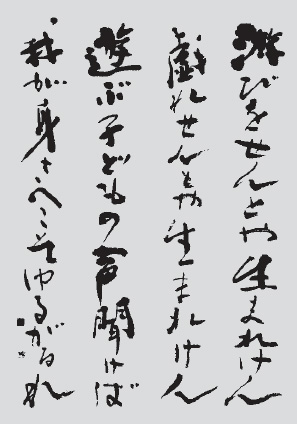 遊びをせんとや生まれけん
戯れせんとや生まれけん
遊ぶ子どもの声聞けば
我が身さへこそゆるがるれ